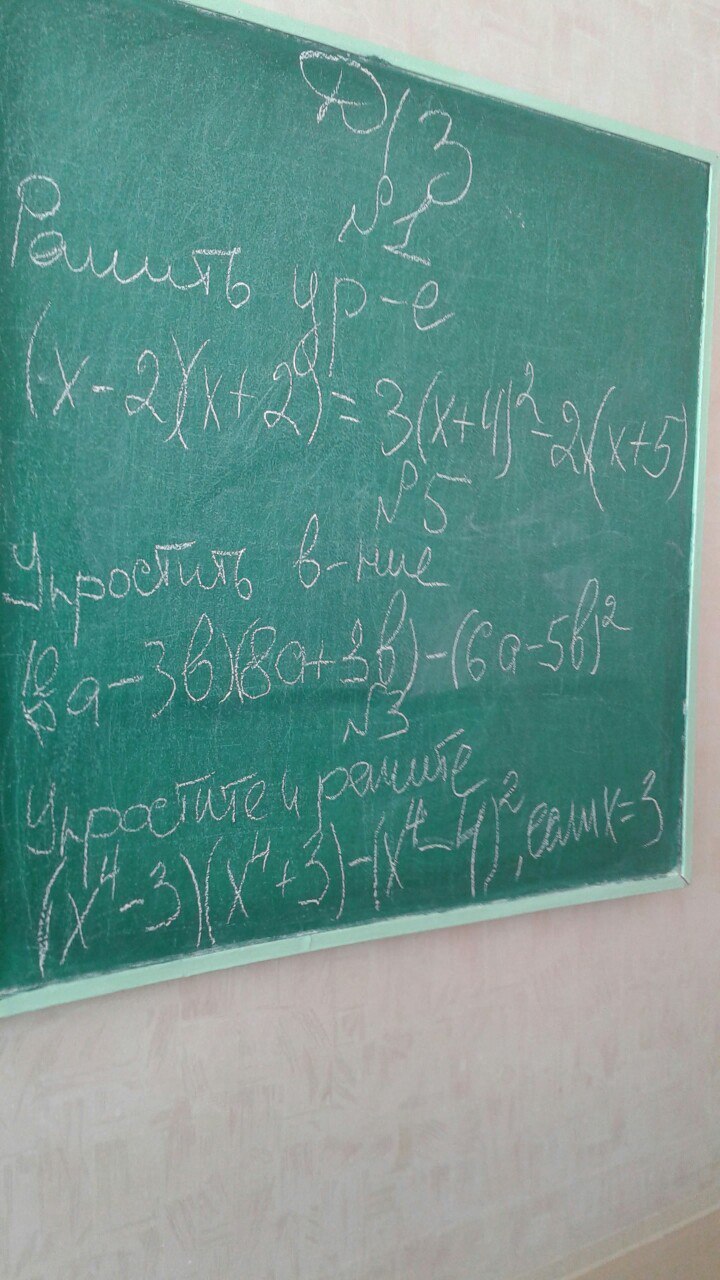 Д/З
№1
Решить ур-е
(x-2)(x+2)=3(x+4)²-2(x+5)
№5
Упростить в-ние
(8a-3b)(8a+3b)-(6a-5b)²
№3
Упростите и решите
(x⁴-3)(x⁴+3)-(x⁴-4)², если x=3